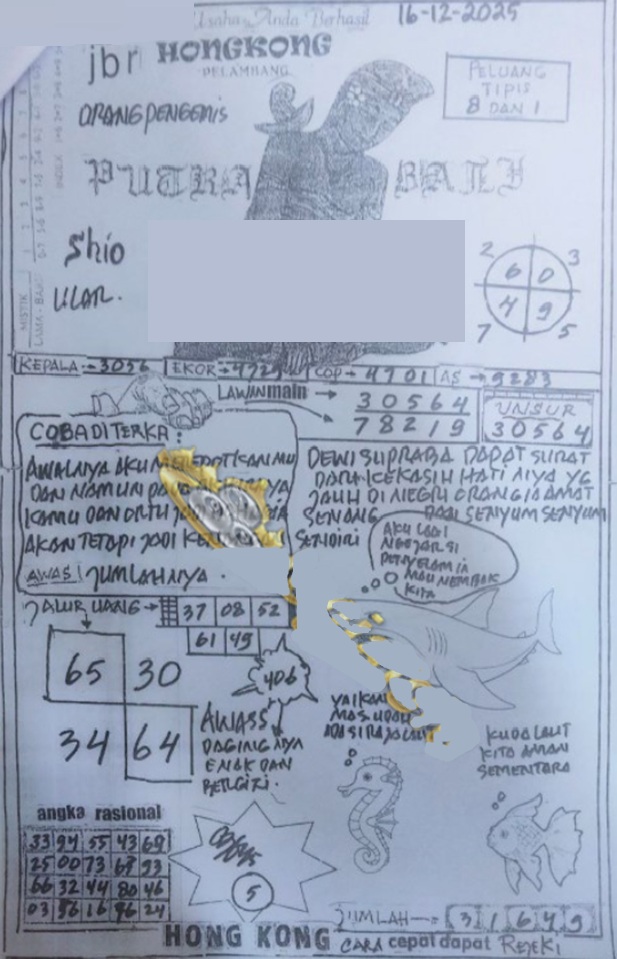 Usaha Anda Berhasil
16-12-2025
jbr HONGKONG
PELAMBANG
PELUANG
TIPIS
8 DAN 1
ORANG PENGEMIS
PUTRA BALI
Shio
ULAR.
2 3
6 0
4 9
7 5
MISTIK
LAMA - BARU
INDEX
KEPALA → 3056 EKOR → 4729 COP → 4701 AS → 9283
LAWAN main → 30564
78219
UNSUR
30564
COBA DITERKA :
AWALNYA AKU
DAN NAMUN
KAMU DAN
AKAN TETAPI JADI
AWAS! JUMLAHNYA .
DEWI SUPRABA DAPAT SURAT
DARI KEKASIH HATI NYA YG
JAUH DI NEGRI ORANG IA AMAT
SENANG DAN SENYUM SENYUM
SENDIRI
AKU LAGI
NGEJAR SI
PENYELAM IA
MAU NEMBAK
KITA
JALUR UANG → 37 08 52
61 49
65 30
34 64
406
AWASS
DAGING NYA
ENAK DAN
BERGIZI.
YA IKAN
MAS UDAH
ADA SI RAJA LAUT
KUDA LAUT
KITA AMAN
SEMENTARA
angka rasional
33 94 55 43 69
25 00 73 68 93
66 32 44 80 46
03 56 16 96 24
5
JUMLAH → 3 1 6 4 9
HONG KONG CARA cepat dapat REJEKI